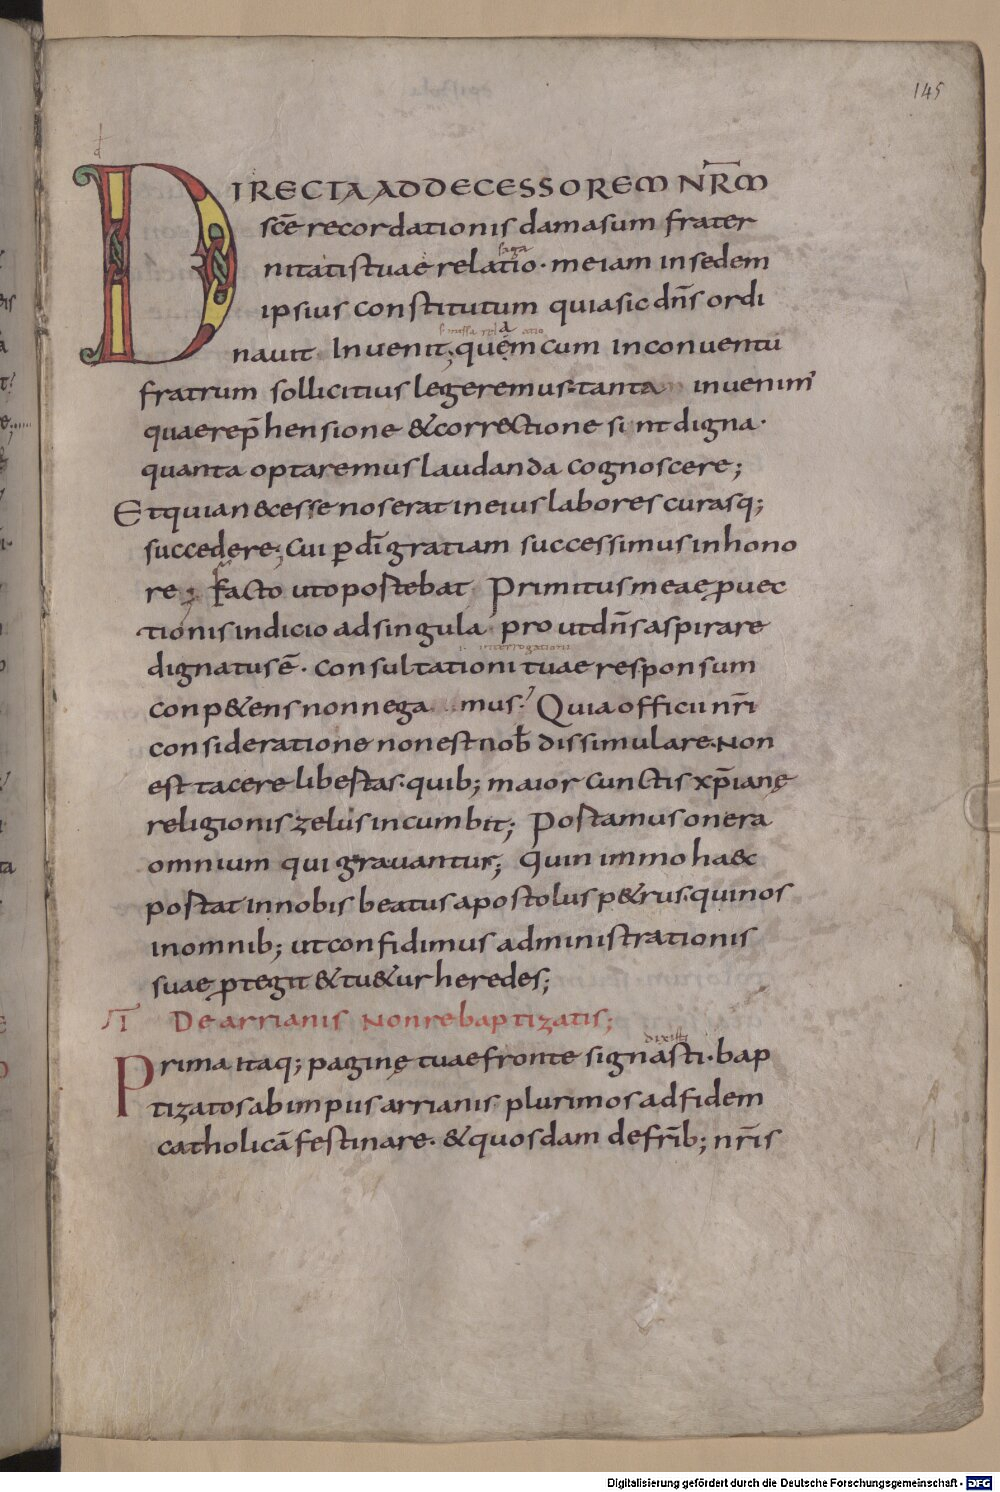 145
DIRECTA AD DECESSOREM NR̄M
scē recordationis damasum frater
saga
nitatis tuae relatio · me iam in sedem
ipsius constitutum quia sic dn̄s ordi
nauit Inuenit; quem cum in conuentu
fratrum sollicitius legeremus · tanta inuenim'
quae rep̄hensione & correctione sint digna ·
quanta optaremus laudanda cognoscere;
Et quia n&cesse nos erat in eius labores curasq;
succedere; cui ꝑ dī gratiam successimus in hono
re; facto ut oportebat Primitus meae ꝓuec
tionis indicio ad singula prout dn̄s aspirare
i· interrogationi
dignatus ē · consultationi tuae responsum
conp&ens non nega mus · Quia officii nr̄i
consideratione non est nob̄ dissimulare · Non
est tacere libertas · quib; maior cunctis xp̄ianę
religionis zelus incumbit; Portamus onera
omnium qui grauantur; quin immo haec
portat in nobis beatus apostolus p&rus · qui nos
in omnib; ut confidimus administrationis
suae ꝓtegit & tu&ur heredes;
I De arrianis Non rebaptizatis;
dixisti
Prima itaq; paginę tuae fronte signasti · bap
tizatos ab impiis arrianis plurimos ad fidem
catholicā festinare · & quosdam de fr̄ib; nr̄is
Digitalisierung gefördert durch die Deutsche Forschungsgemeinschaft - DFG